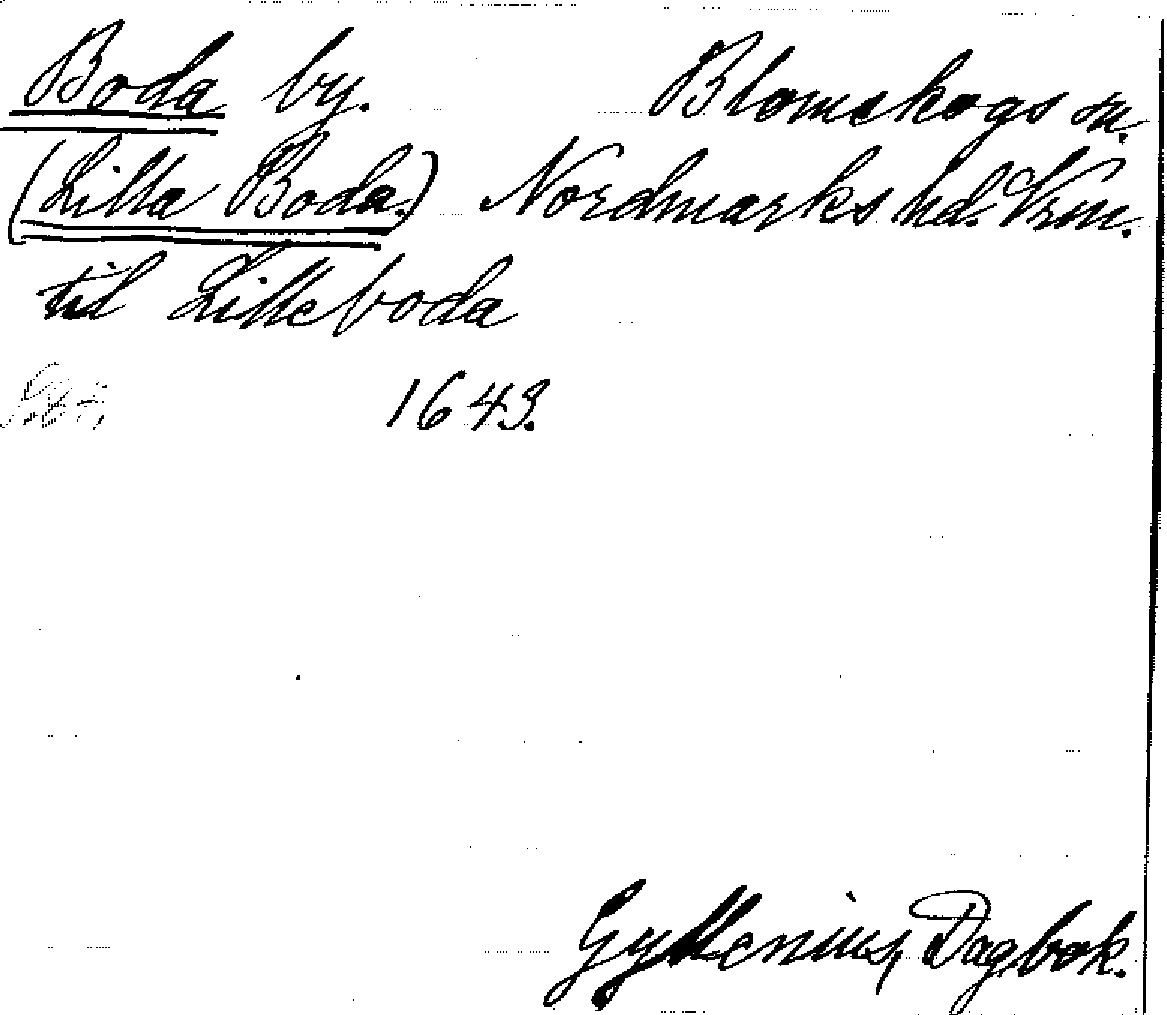 Boda by. Blomskogs sn.
(Lilla Boda.) Nordmarks hd. Vrm.
til Lilleboda
1643.
Gyllenius, Dagbok.